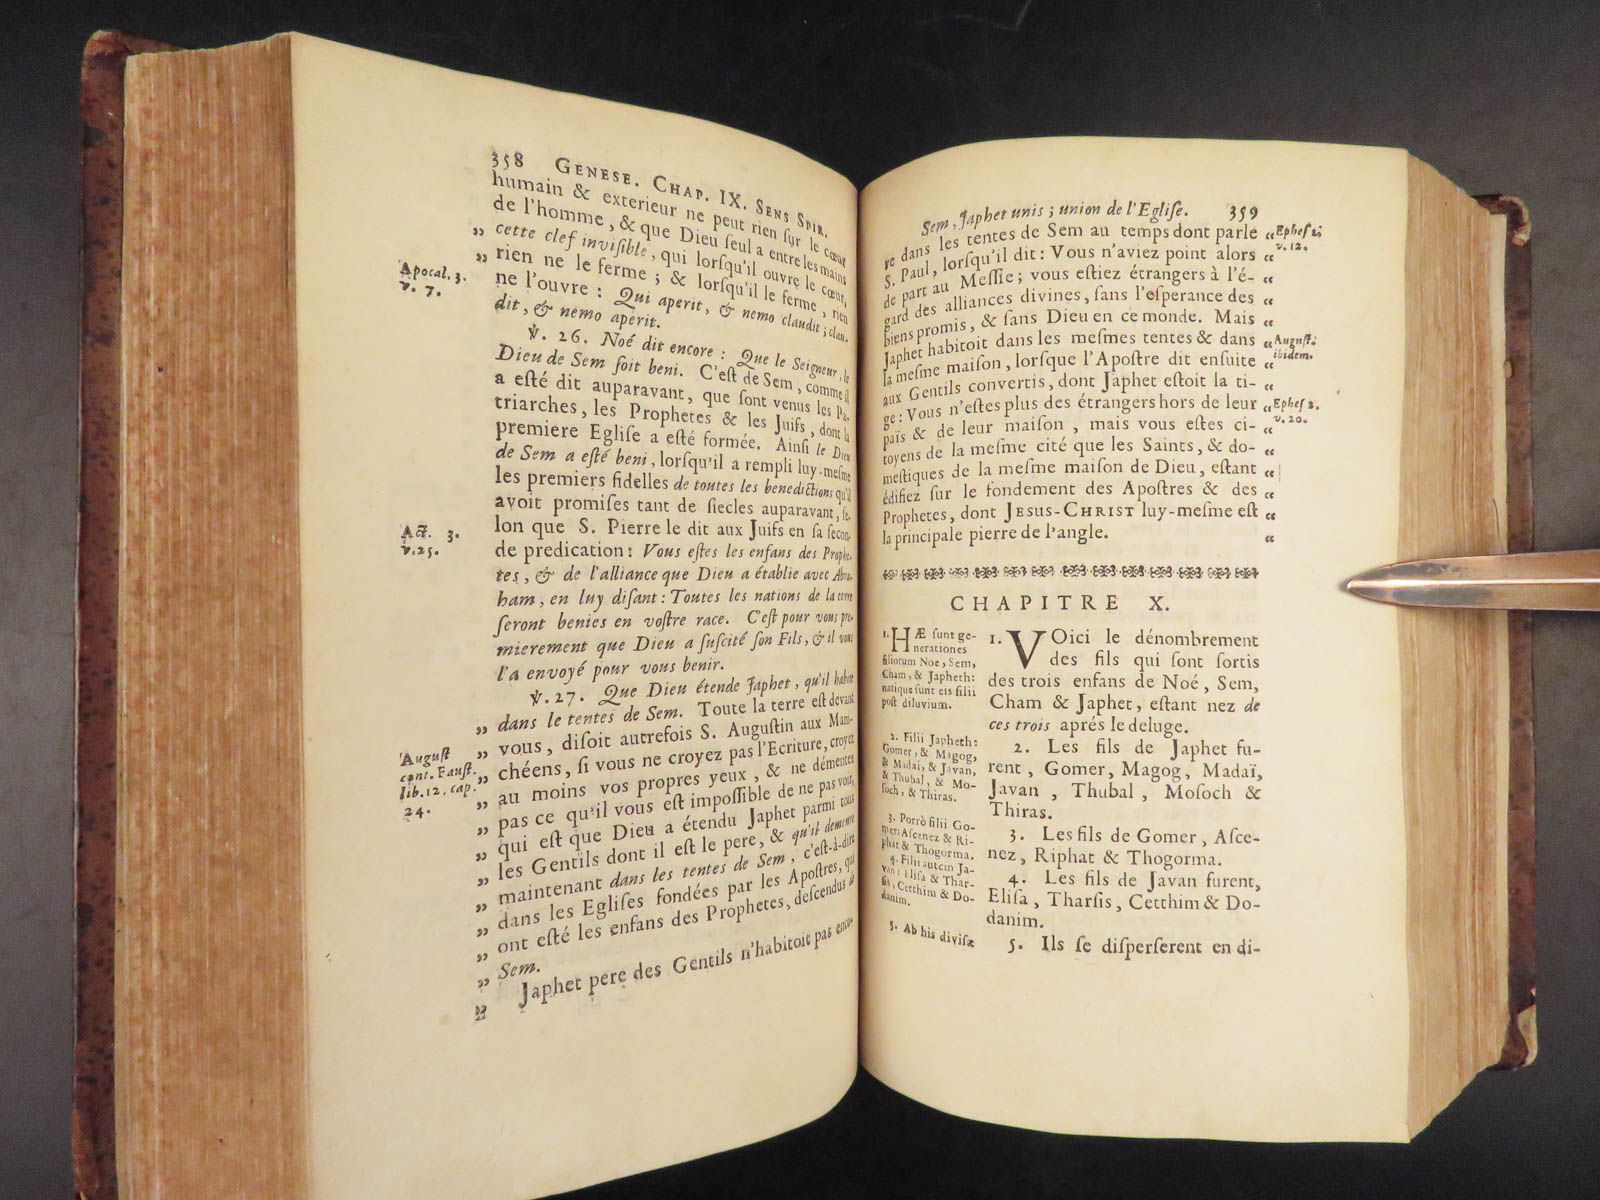 358 GENESE. CHAP. IX. SENS SPIR.
humain & exterieur ne peut rien ſur le cœur
de l'homme, & que Dieu ſeul a entre les mains
„ cette clef inviſible, qui lorſqu'il ouvre le cœur,
„ rien ne le ferme ; & lorſqu'il le ferme, rien
Apocal. 3.
v. 7.
ne l'ouvre : Qui aperit, & nemo claudit ; clau-
dit, & nemo aperit.
℣. 26. Noé dit encore : Que le Seigneur, le
Dieu de Sem ſoit beni. C'eſt de Sem, comme il
a eſté dit auparavant, que ſont venus les Pa-
triarches, les Prophetes & les Juifs, dont la
premiere Egliſe a eſté formée. Ainſi le Dieu
de Sem a eſté beni, lorſqu'il a rempli luy-meſme
les premiers fidelles de toutes les benedictions qu'il
avoit promiſes tant de ſiecles auparavant, ſe-
Act. 3.
v.25.
lon que S. Pierre le dit aux Juifs en ſa ſecon-
de predication : Vous eſtes les enfans des Prophe-
tes, & de l'alliance que Dieu a établie avec Abra-
ham, en luy diſant : Toutes les nations de la terre
ſeront benies en voſtre race. C'eſt pour vous pre-
mierement que Dieu a ſuſcité ſon Fils, & il vous
l'a envoyé pour vous benir.
℣. 27. Que Dieu étende Japhet, qu'il habite
„ dans le tentes de Sem. Toute la terre eſt devant
Auguſt
cont. Fauſt.
lib. 12. cap.
24.
„ vous, diſoit autrefois S. Auguſtin aux Mani-
„ chéens, ſi vous ne croyez pas l'Ecriture, croyez
„ au moins vos propres yeux, & ne démentez
„ pas ce qu'il vous eſt impoſſible de ne pas voir,
„ qui eſt que Dieu a étendu Japhet parmi tous
„ les Gentils dont il eſt le pere, & qu'il demeure
„ maintenant dans les tentes de Sem, c'eſt-à-dire
„ dans les Egliſes fondées par les Apoſtres, qui
„ ont eſté les enfans des Prophetes, deſcendus de
„ Sem.
„ Japhet pere des Gentils n'habitoit pas enco-
Sem, Japhet unis ; union de l'Egliſe. 359
re dans les tentes de Sem au temps dont parle “ Epheſ 2.
S. Paul, lorſqu'il dit : Vous n'aviez point alors “ v. 12.
de part au Meſſie ; vous eſtiez étrangers à l'é- “
gard des alliances divines, ſans l'eſperance des “
biens promis, & ſans Dieu en ce monde. Mais “
Japhet habitoit dans les meſmes tentes & dans “ Auguſt.
la meſme maiſon, lorſque l'Apoſtre dit enſuite “ ibidem.
aux Gentils convertis, dont Japhet eſtoit la ti- “
ge : Vous n'eſtes plus des étrangers hors de leur “ Epheſ 2.
païs & de leur maiſon, mais vous eſtes ci- “ v. 20.
toyens de la meſme cité que les Saints, & do- “
meſtiques de la meſme maiſon de Dieu, eſtant “
édifiez ſur le fondement des Apoſtres & des “
Prophetes, dont JESUS-CHRIST luy-meſme eſt “
la principale pierre de l'angle. “
CHAPITRE X.
1. HÆ ſunt ge-
nerationes
filiorum Noe, Sem,
Cham, & Japheth:
natique ſunt eis filii
poſt diluvium.
2. Filii Japheth:
Gomer, & Magog,
& Madai, & Javan,
& Thubal, & Mo-
ſoch, & Thiras.
3. Porrò filii Go-
mer: Aſcenez & Ri-
phat & Thogorma.
4. Filii autem Ja-
van: Eliſa & Thar-
ſis, Cetthim & Do-
danim.
5. Ab his diviſæ
1. VOici le dénombrement
des fils qui ſont ſortis
des trois enfans de Noé, Sem,
Cham & Japhet, eſtant nez de
ces trois aprés le deluge.
2. Les fils de Japhet fu-
rent, Gomer, Magog, Madaï,
Javan, Thubal, Moſoch &
Thiras.
3. Les fils de Gomer, Aſce-
nez, Riphat & Thogorma.
4. Les fils de Javan furent,
Eliſa, Tharſis, Cetthim & Do-
danim.
5. Ils ſe diſperſerent en di-